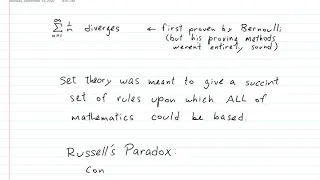 ∞
Σ 1/n diverges ← first proven by Bernoulli
n=1 (but his proving methods
werent entirely sound)
Set Theory was meant to give a succint
set of rules upon which ALL of
mathematics could be based.
Russell's Paradox:
Con